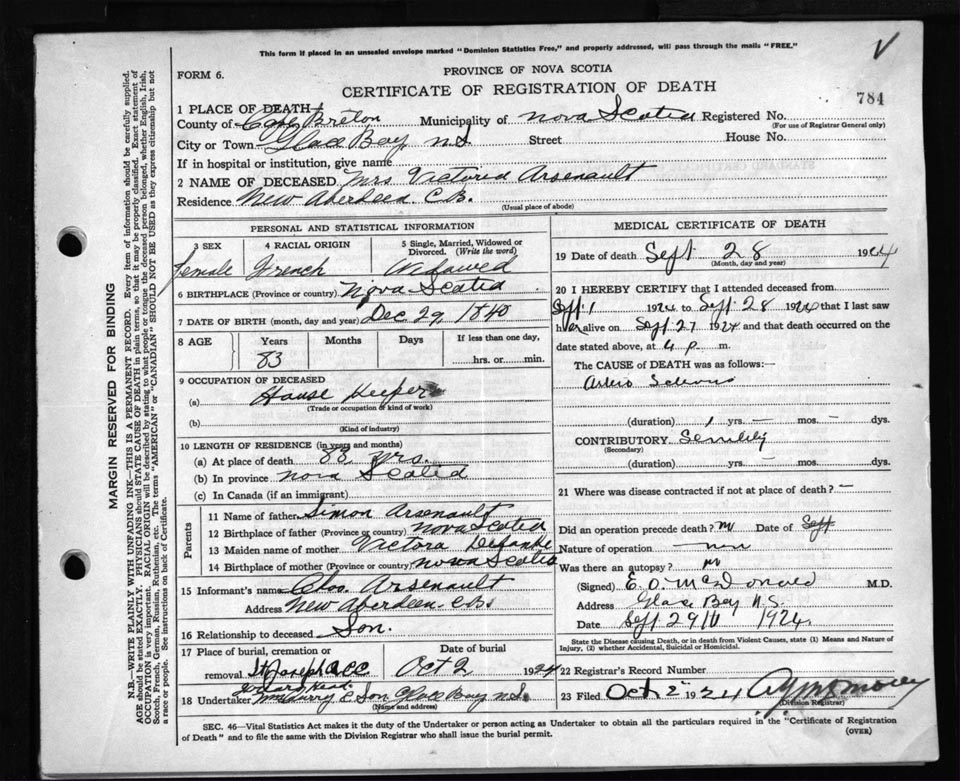 This form if placed in an unsealed envelope marked "Dominion Statistics Free," and properly addressed, will pass through the mails "FREE."
V
FORM 6.
PROVINCE OF NOVA SCOTIA
CERTIFICATE OF REGISTRATION OF DEATH
784
1 PLACE OF DEATH
County of Cape Breton Municipality of Nova Scotia Registered No.
(For use of Registrar General only)
City or Town Glace Bay N.S. Street House No.
If in hospital or institution, give name
2 NAME OF DECEASED Mrs Victoria Arsenault
Residence New Aberdeen. C.B.
(Usual place of abode)
PERSONAL AND STATISTICAL INFORMATION
3 SEX 4 RACIAL ORIGIN 5 Single, Married, Widowed or Divorced. (Write the word)
female French Widowed
6 BIRTHPLACE (Province or country) Nova Scotia
7 DATE OF BIRTH (month, day and year) Dec 29, 1840
8 AGE Years Months Days If less than one day,
83 hrs. or min.
9 OCCUPATION OF DECEASED
(a) House Keeper
(Trade or occupation or kind of work)
(b)
(Kind of industry)
10 LENGTH OF RESIDENCE (in years and months)
(a) At place of death 83 yrs.
(b) In province Nova Scotia
(c) In Canada (if an immigrant)
Parents
11 Name of father Simon Arsenault
12 Birthplace of father (Province or country) Nova Scotia
13 Maiden name of mother Victora
14 Birthplace of mother (Province or country) Nova Scotia
15 Informant's name Arsenault
Address New Aberdeen. C.B.
16 Relationship to deceased Son.
17 Place of burial, cremation or removal St Joseph Date of burial Oct 2 1924
18 Undertaker E Son Glace Bay N.S.
(Name and address)
MEDICAL CERTIFICATE OF DEATH
19 Date of death Sept 28 1924
(Month, day and year)
20 I HEREBY CERTIFY that I attended deceased from
Sept 1 1924 to Sept 28 1924 that I last saw
her alive on Sept 27 1924 and that death occurred on
date stated above, at 4 p. m.
The CAUSE of DEATH was as follows:—
Arterio Sclerosis
(duration) 1 yrs. — mos. — dys.
CONTRIBUTORY Senility
(Secondary)
(duration) — yrs. — mos. — dys.
21 Where was disease contracted if not at place of death? —
Did an operation precede death? no Date of Sept
Nature of operation
Was there an autopsy? no
(Signed) E. O. McDonald M.D.
Address Glace Bay N.S.
Date Sept 29 1924
State the Disease causing Death, or in death from Violent Causes, state (1) Means and Nature of Injury, (2) whether Accidental, Suicidal or Homicidal.
22 Registrar's Record Number
23 Filed Oct 2 1924
(Division Registrar)
SEC. 46—Vital Statistics Act makes it the duty of the Undertaker or person acting as Undertaker to obtain all the particulars required in the "Certificate of Registration
of Death" and to file the same with the Division Registrar who shall issue the burial permit.
(OVER)
MARGIN RESERVED FOR BINDING
N.B.—WRITE PLAINLY WITH UNFADING INK—THIS IS A PERMANENT RECORD. Every item of information should be carefully supplied.
AGE should be stated EXACTLY. PHYSICIANS should STATE CAUSE OF DEATH in plain terms, so that it may be properly classified. Exact statement of
OCCUPATION is very important. RACIAL ORIGIN will be described by stating to what people or tongue the deceased person belonged, whether English, Irish,
Scotch, French, German, Russian, Ruthenian, etc. The terms "AMERICAN" or "CANADIAN" SHOULD NOT BE USED as they express citizenship but not
a race or people. See instructions on back of Certificate.